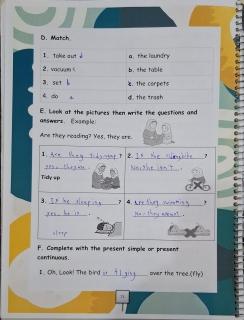 D. Match.
1. take out d a. the laundry
2. vacuum c b. the table
3. set b c. the carpets
4. do a d. the trash
E. Look at the pictures then write the questions and
answers. Example:
Are they reading? Yes, they are.
1. Are they tidying ? 2. Is he ?
No, he isn't.
Tidy up
3. Is he sleeping ? 4. Are they ?
yes, he is.
sleep
F. Complete with the present simple or present
continuous.
1. Oh, Look! The bird is flying over the tree.(fly)